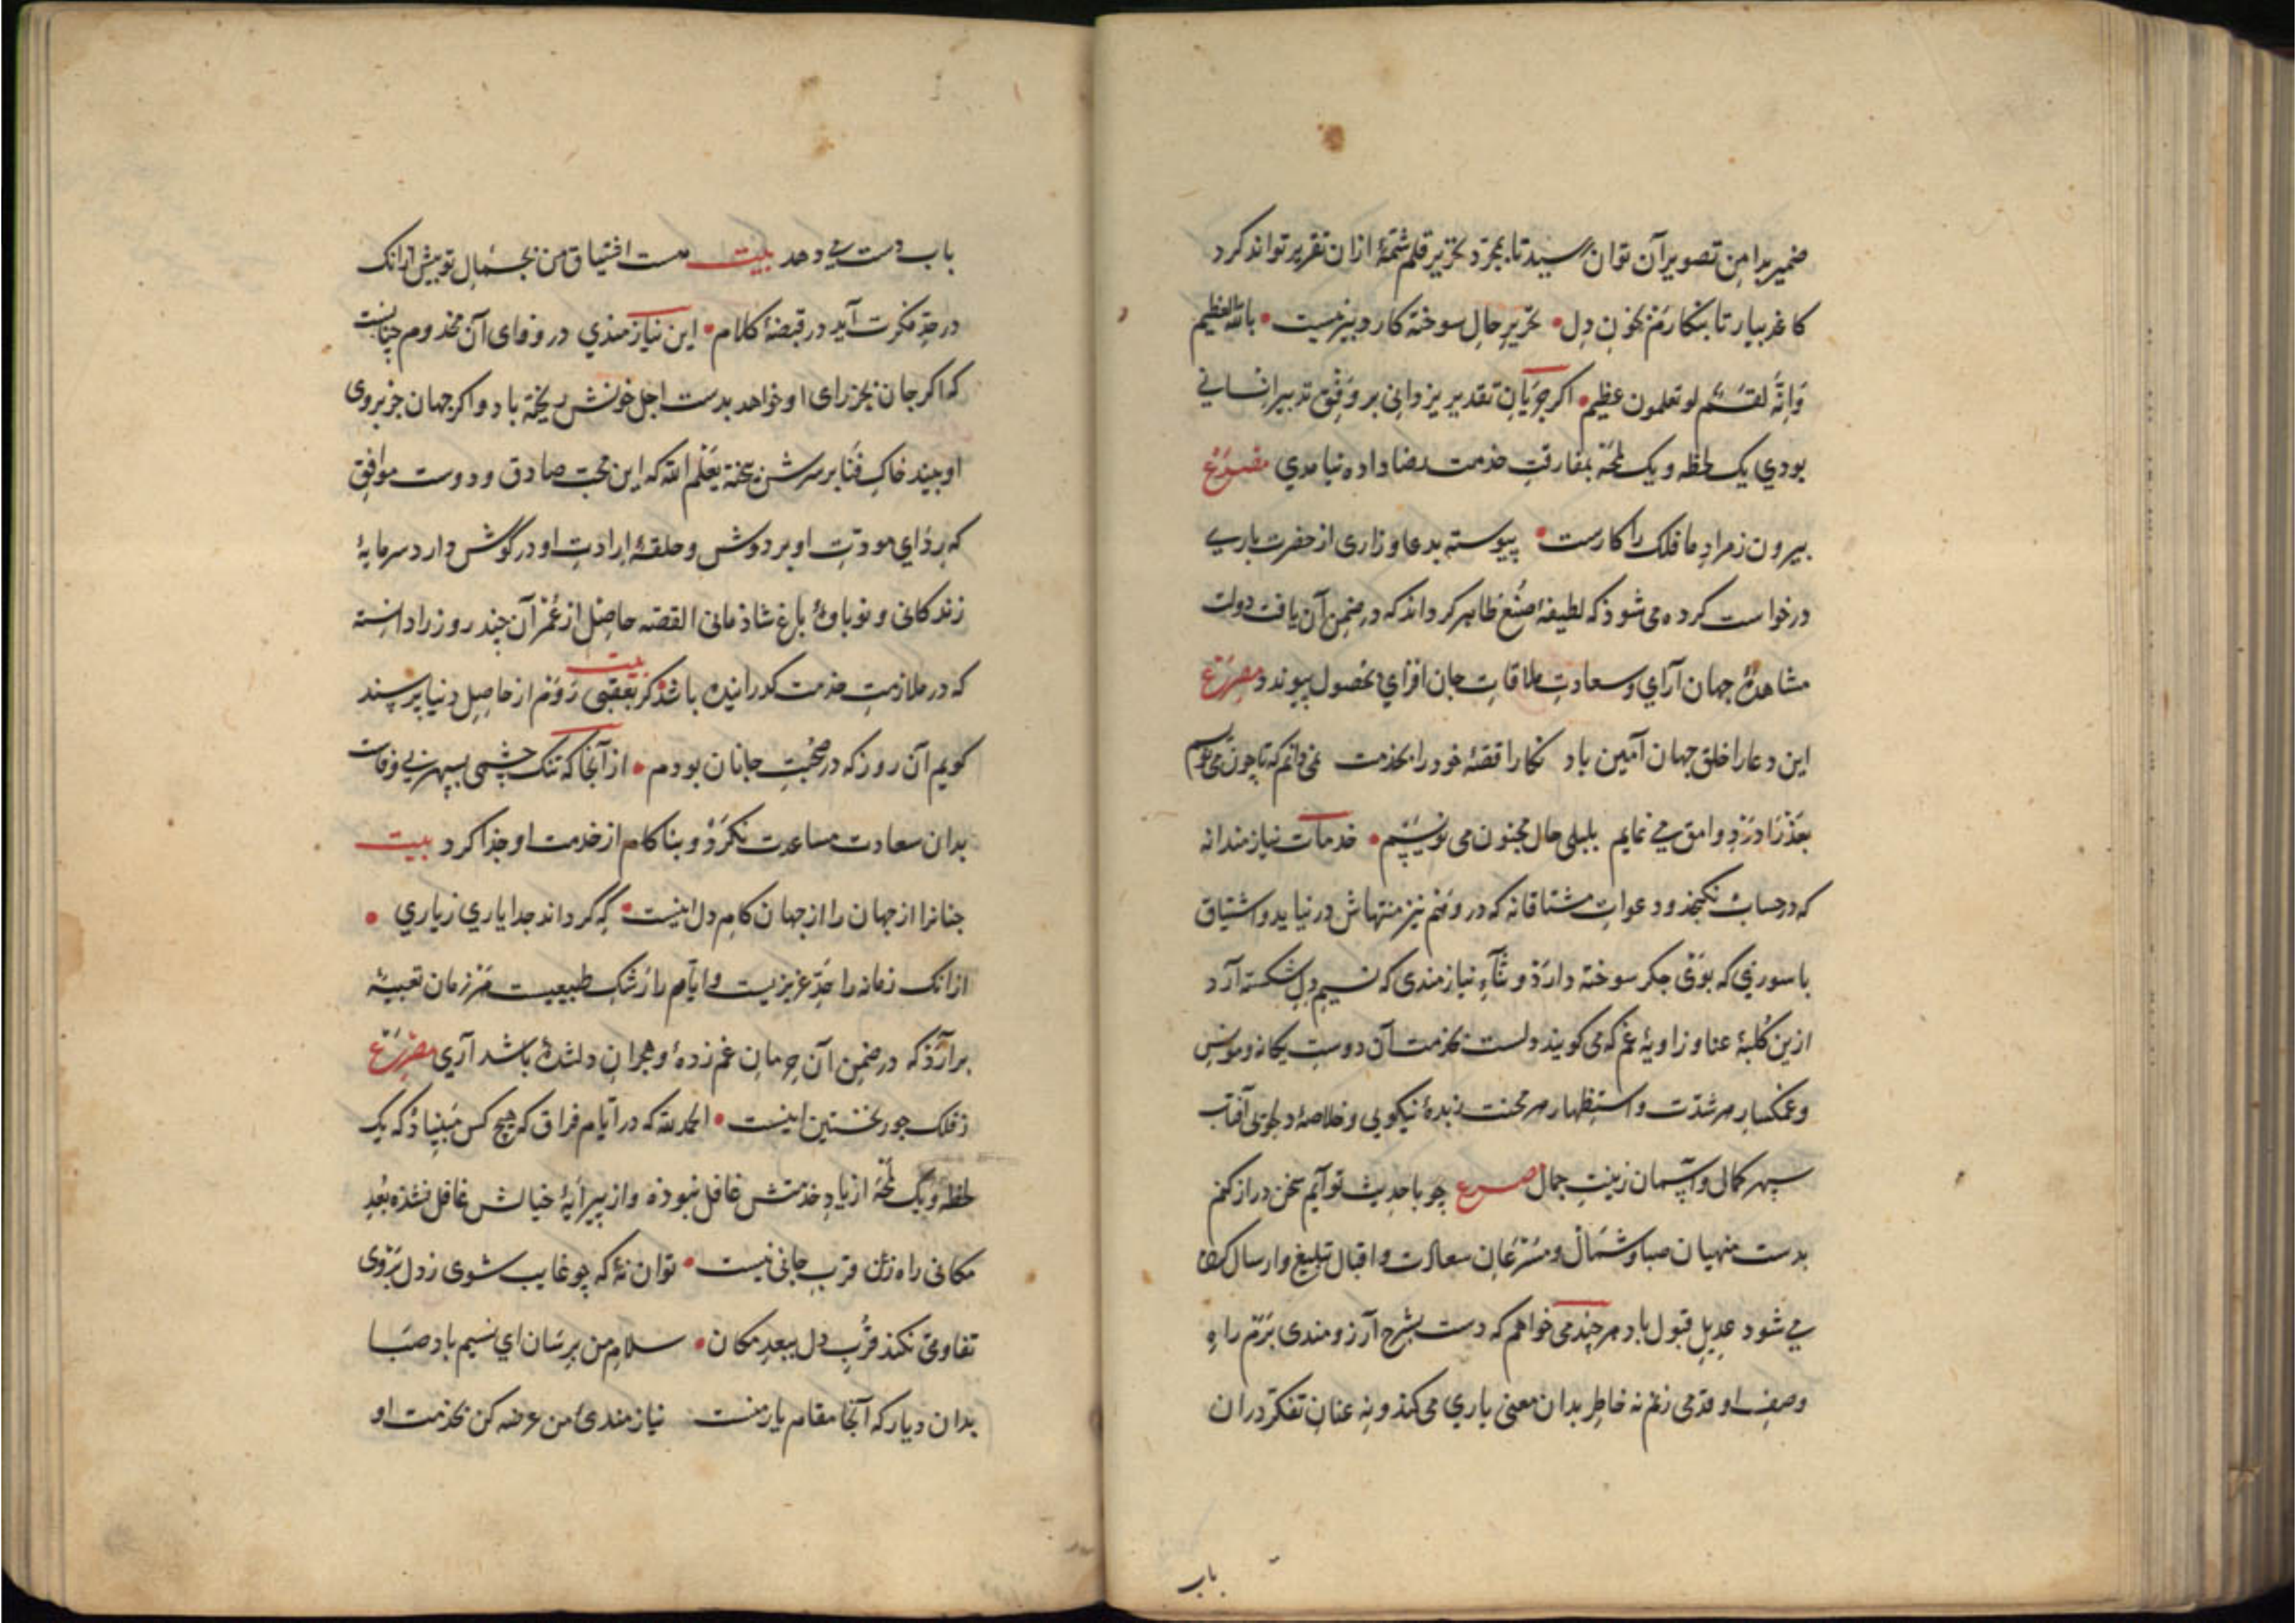 ضمیر بدامن تصویر آن توان رسید تا بمجرد تحریر قلم شمّهٔ ازان تقریر تواند کرد
کاغذ بیار تا بنکارم بخون دل • تحریر حال سوخته کار دبیر نیست • بالله العظیم
وَاِنّهُ لقسَمٌ لو تعلمون عظیم • اکر جَرَیان تقدیر یزدانی بر وفق تدبیر انسانی
بودي یک لحظه و یک لمحه بمفارقت خدمت رضا داده نیامدي مصرع
بیرون ز مراد ما فلک را کارست • پیوسته بدعا و زاری از حضرت باری
درخواست کرده می شوذ که لطیفهٔ صنع ظاهر کرداند که در ضمن آن یافت دولت
مشاهدهٔ جهان آرای و سعادت ملاقات جان افزای بحصول پیوندد مصرع
این دعا را خلق جهان آمین باد نکارا قصّهٔ خود را بخدمت نمی دانم که تا چون
بعذرا درد وامق می نمایم بلیلی حال مجنون می نویسم • خدمات نیازمندانه
که در حساب نکنجذ و دعوات مشتاقانه که در وهم نیز منتهاش درنیاید و اشتیاق
با سوزی که بوی جکر سوخته دارذ و ثنآء نیازمندی که نسیم دل شکسته آرد
ازین کلبهٔ عنا و زاویهٔ غم که می کویند دلست بخدمت آن دوست یکانه و مونس
و غمکسار هر شدّت و استظهار هر محنت زبدهٔ نیکویی و خلاصهٔ دلجوئی آفتاب
سپهر کمال و آسمان زینت جمال مصرع چو با حدیث تو آیم سخن دراز کنم
بدست منهیان صبا و شمال و مسرعان سعادت و اقبال تبلیغ و ارسال کرده
می شود عدیل قبول باد هر چند می خواهم که دست بشرح آرزومندی برم راه
وصف او قدمی زنم نه خاطر بدان معنی یاري می کند و نه عنان تفکر دران
باب
باب دست می دهد بیت هست اشتیاق من بجمال تو بیش ازانک
در حدّ فکرت آید در قبضهٔ کلام • این نیازمندي در وفای آن مخدوم چنانست
که اکر جان بجز رای او خواهد بدست اجل خونش ریخته باد و اکر جهان جز بروی
او بیند خاک فنا بر سرش بیخته یعلم الله که این محبّ صادق و دوست موافق
که رداي مودّت او بر دوش و حلقهٔ ارادت او در گوش دارد سرمایهٔ
زندکانی و نوباوهٔ باغ شاذمانی القصه حاصل از عمر آن چند روز را دانسته
که در ملازمت خدمت کذرانیده باشذ بیت کر بعقبی روم از حاصل دنیا پرسند
کویم آن روز که در صحبت جانان بودم • از آنجا که تنک چشمی سپهر بی وفاست
بدان سعادت مساعدت نکرد و بناکام از خدمت او جذا کرد بیت
جنانرا از جهان را از جهان کام دل اینست • که گرداند جدا یاری ز یاری •
ازانک زمانه را عزیزیست و ایام را رشک طبیعیست هر زمان تعبیهٔ
برآرد که در ضمن آن حرمان غم زدهٔ و هجران دلشدهٔ باشد آری مصرع
ز فلک جور نخستین اینست • الحمد لله که در ایام فراق که هیچ کس مبیناذ که یک
لحظه و یک لمحه از یاد خدمتش غافل نبوده و از پیرایهٔ خیالش عاطل نشذه بعد
مکانی راه زن قرب جانی نیست • توان نهٔ که چو غایب شوی ز دل بروی
تفاوتی نکند قرب دل ببعد مکان • سلام من برسان اي نسیم باد صبا
بدان دیار که آنجا مقام یار منست نیازمندی من عرضه کن بخدمت او